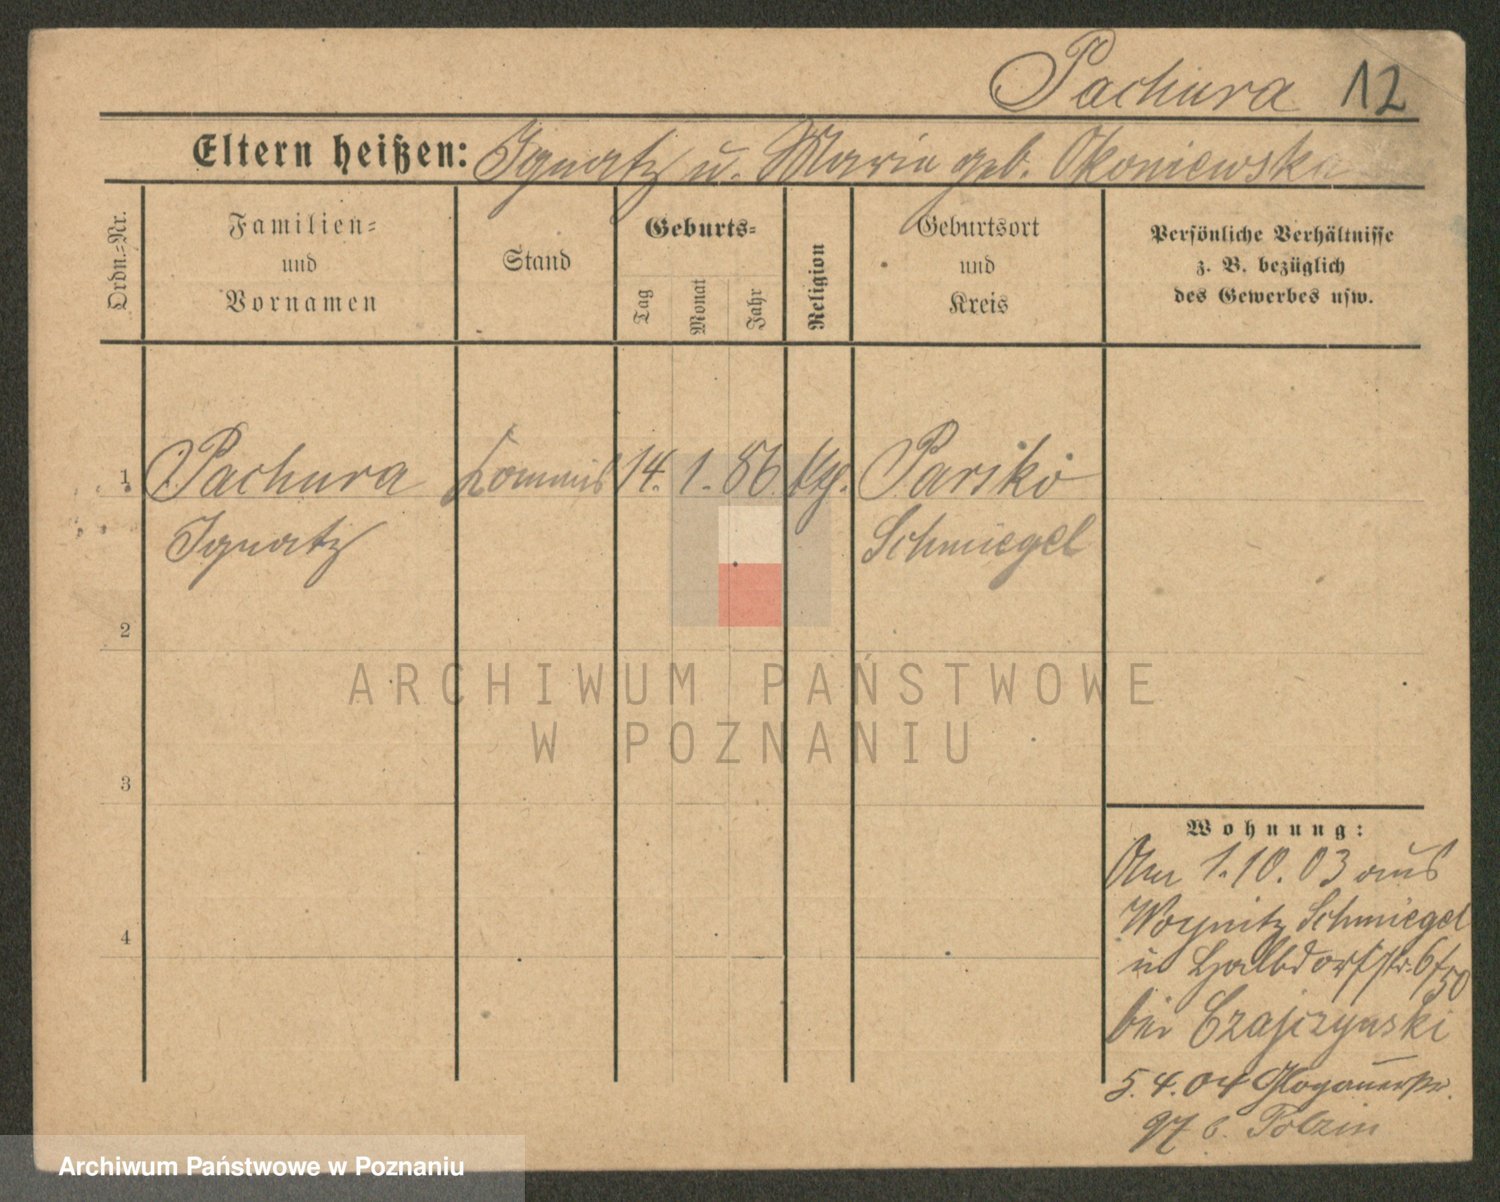 Pachura 12
Eltern heißen: Ignatz u. Marie geb. Okoniewska
Ordn.-Nr.
Familien-
und
Vornamen
Stand
Geburts-
Tag
Monat
Jahr
Religion
Geburtsort
und
Kreis
Persönliche Verhältnisse
z. B. bezüglich
des Gewerbes usw.
1 Pachura Kommis 14. 1. 86. ktg. Parsko
Ignatz Schmiegel
2
3
4
ARCHIWUM PAŃSTWOWE
W POZNANIU
Wohnung:
Am 1.10.03 aus
Woynitz Schmiegel
n Halbdorfstr. 6/50
bei Czajczynski
5.4.04 Glogauerstr.
97 b. Polzin
Archiwum Państwowe w Poznaniu